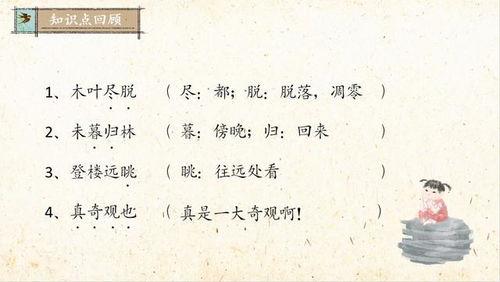 知识点回顾
1、木叶尽脱 （ 尽：都；脱：脱落，凋零 ）
2、未暮归林 （ 暮：傍晚；归：回来 ）
3、登楼远眺 （ 眺：往远处看 ）
4、真奇观也 （ 真是一大奇观啊! ）